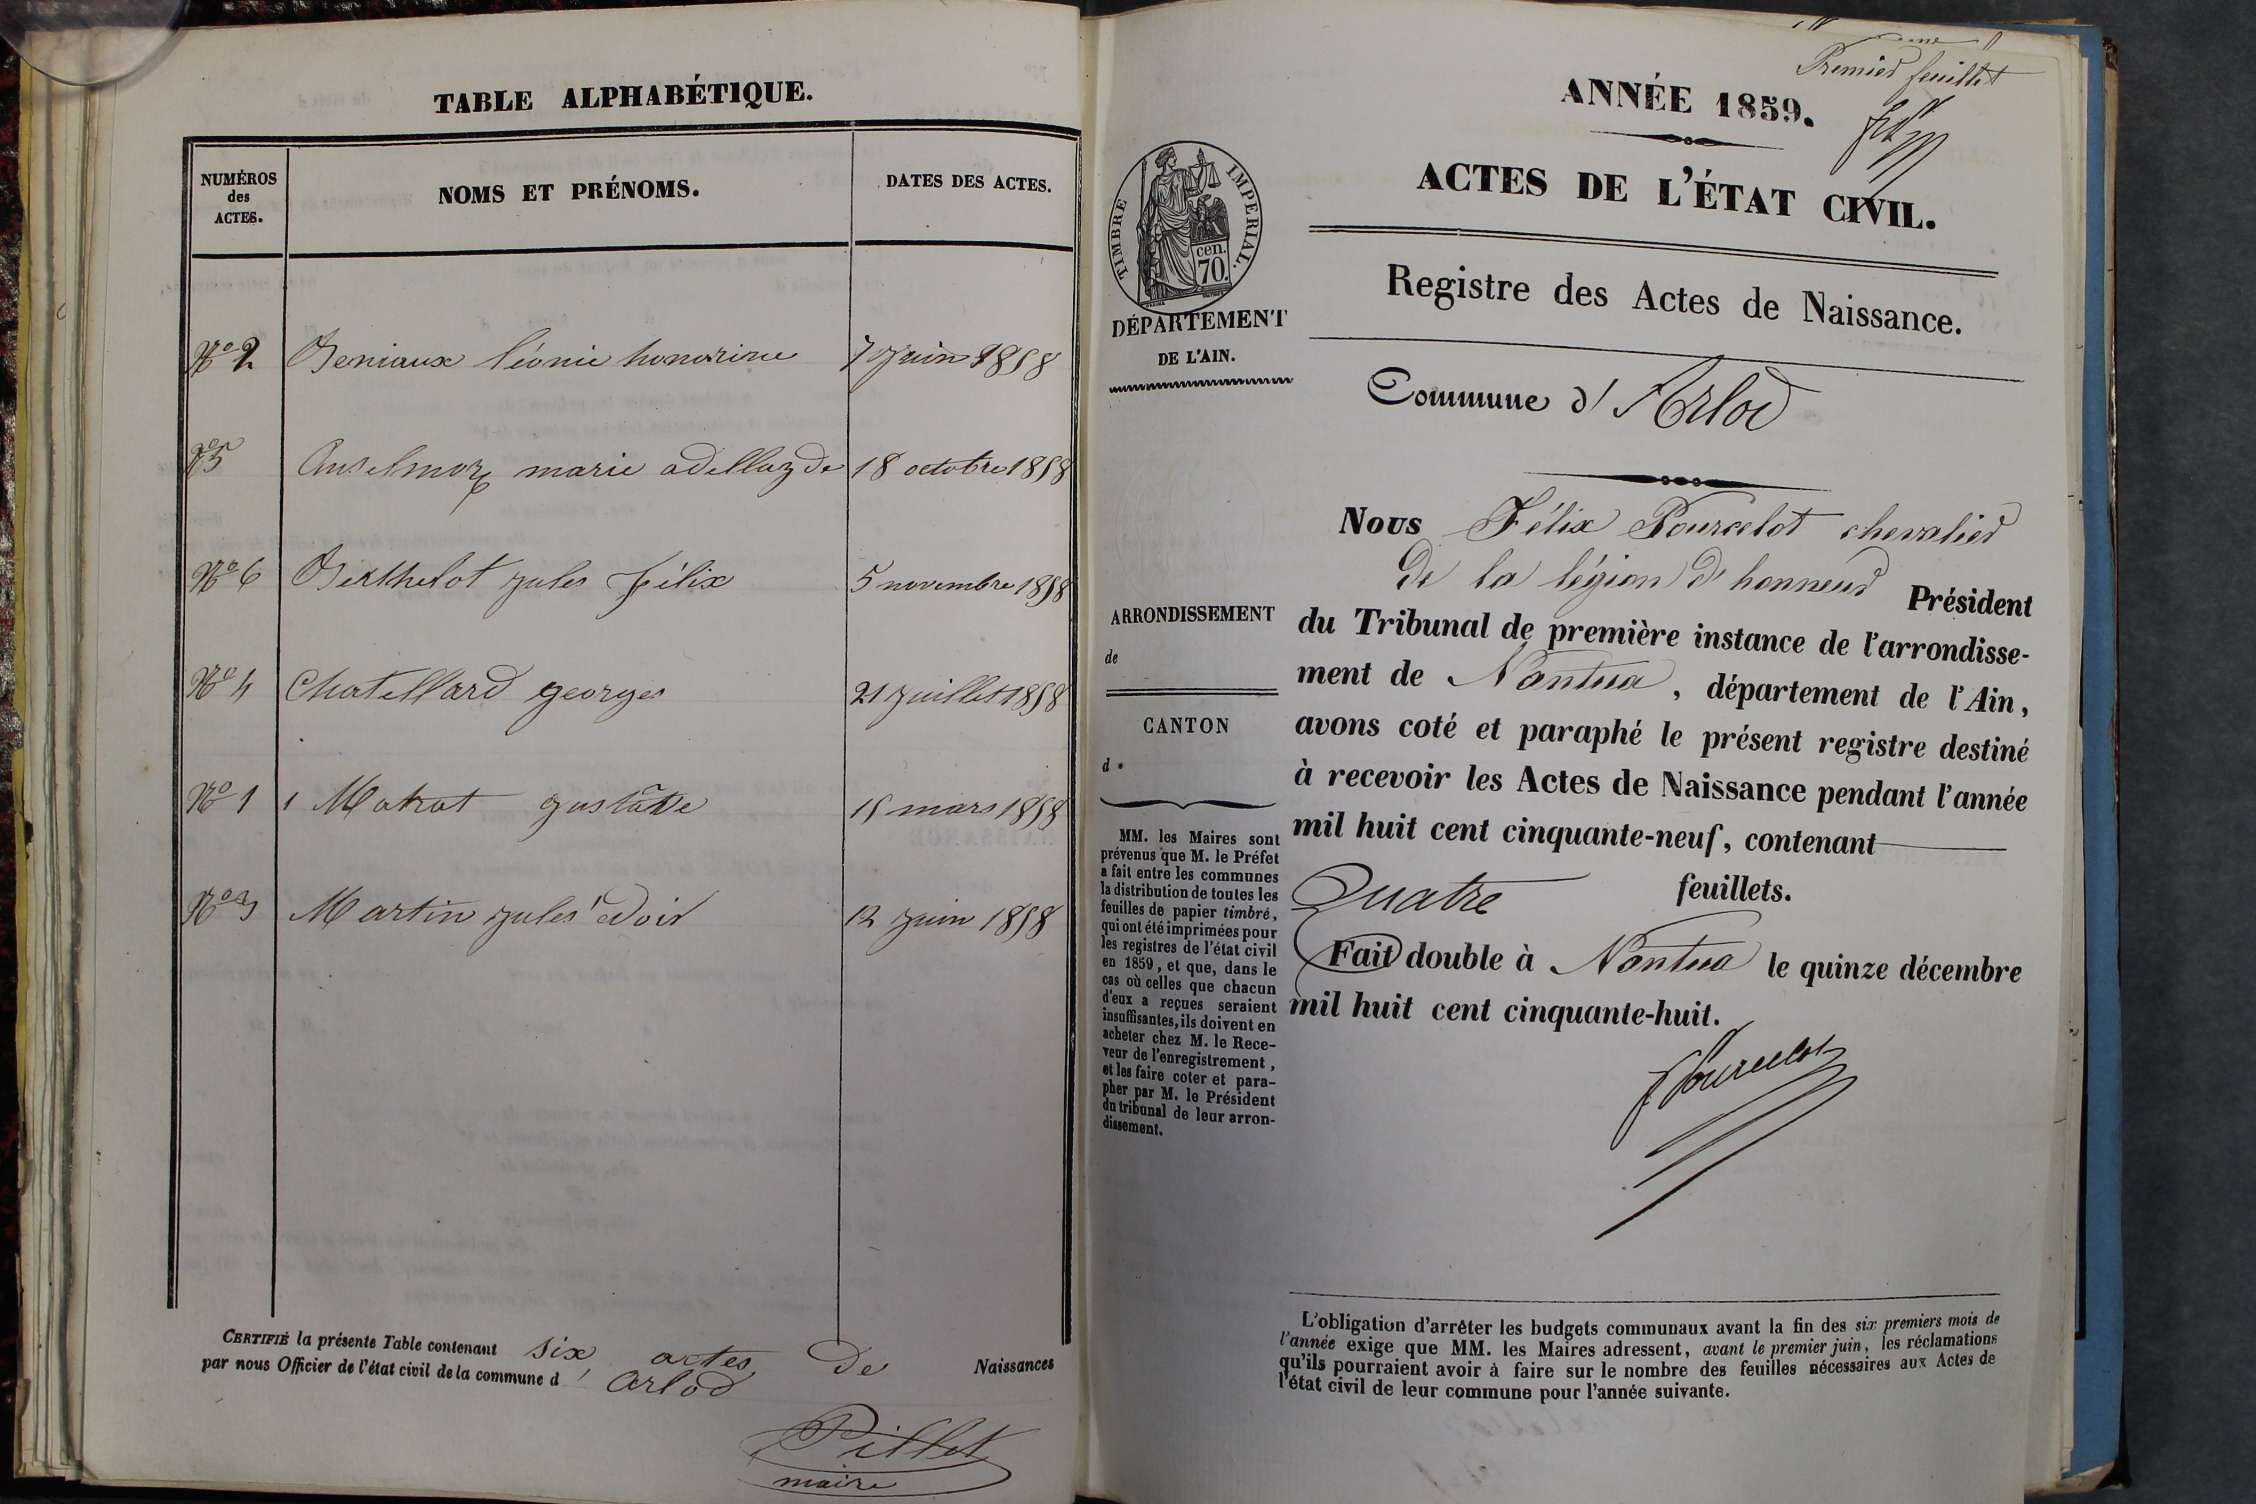 TABLE ALPHABÉTIQUE.
NUMÉROS
des
ACTES.
NOMS ET PRÉNOMS.
DATES DES ACTES.
No 2 Beniaux léonie honorine 7 Juin 1858
No 5 Anselmoz marie adellayde 18 octobre 1858
No 6 Berthelot jules félix 5 novembre 1858
No 4 Chatellard georges 21 juillet 1858
No 1 Matrat gustave 15 mars 1858
No 3 Martin jules 12 juin 1858
CERTIFIÉ la présente Table contenant six actes de Naissances
par nous Officier de l'état civil de la commune d' arlod
Pillet
maire
Premier feuillet
ANNÉE 1859.
ACTES DE L'ÉTAT CIVIL.
TIMBRE IMPERIAL.
70 cen.
DÉPARTEMENT
DE L'AIN.
Registre des Actes de Naissance.
Commune d'Arlod
ARRONDISSEMENT
de
CANTON
d
MM. les Maires sont
prévenus que M. le Préfet
a fait entre les communes
la distribution de toutes les
feuilles de papier timbré,
qui ont été imprimées pour
les registres de l'état civil
en 1859, et que, dans le
cas où celles que chacun
d'eux a reçues seraient
insuffisantes, ils doivent en
acheter chez M. le Rece-
veur de l'enregistrement,
et les faire coter et para-
pher par M. le Président
du tribunal de leur arron-
dissement.
Nous Félix Pourcelot chevalier
de la légion d'honneur Président
du Tribunal de première instance de l'arrondisse-
ment de Nantua, département de l'Ain,
avons coté et paraphé le présent registre destiné
à recevoir les Actes de Naissance pendant l'année
mil huit cent cinquante-neuf, contenant
Quatre feuillets.
Fait double à Nantua le quinze décembre
mil huit cent cinquante-huit.
F Pourcelot
L'obligation d'arrêter les budgets communaux avant la fin des six premiers mois de
l'année exige que MM. les Maires adressent, avant le premier juin, les réclamations
qu'ils pourraient avoir à faire sur le nombre des feuilles nécessaires aux Actes de
l'état civil de leur commune pour l'année suivante.